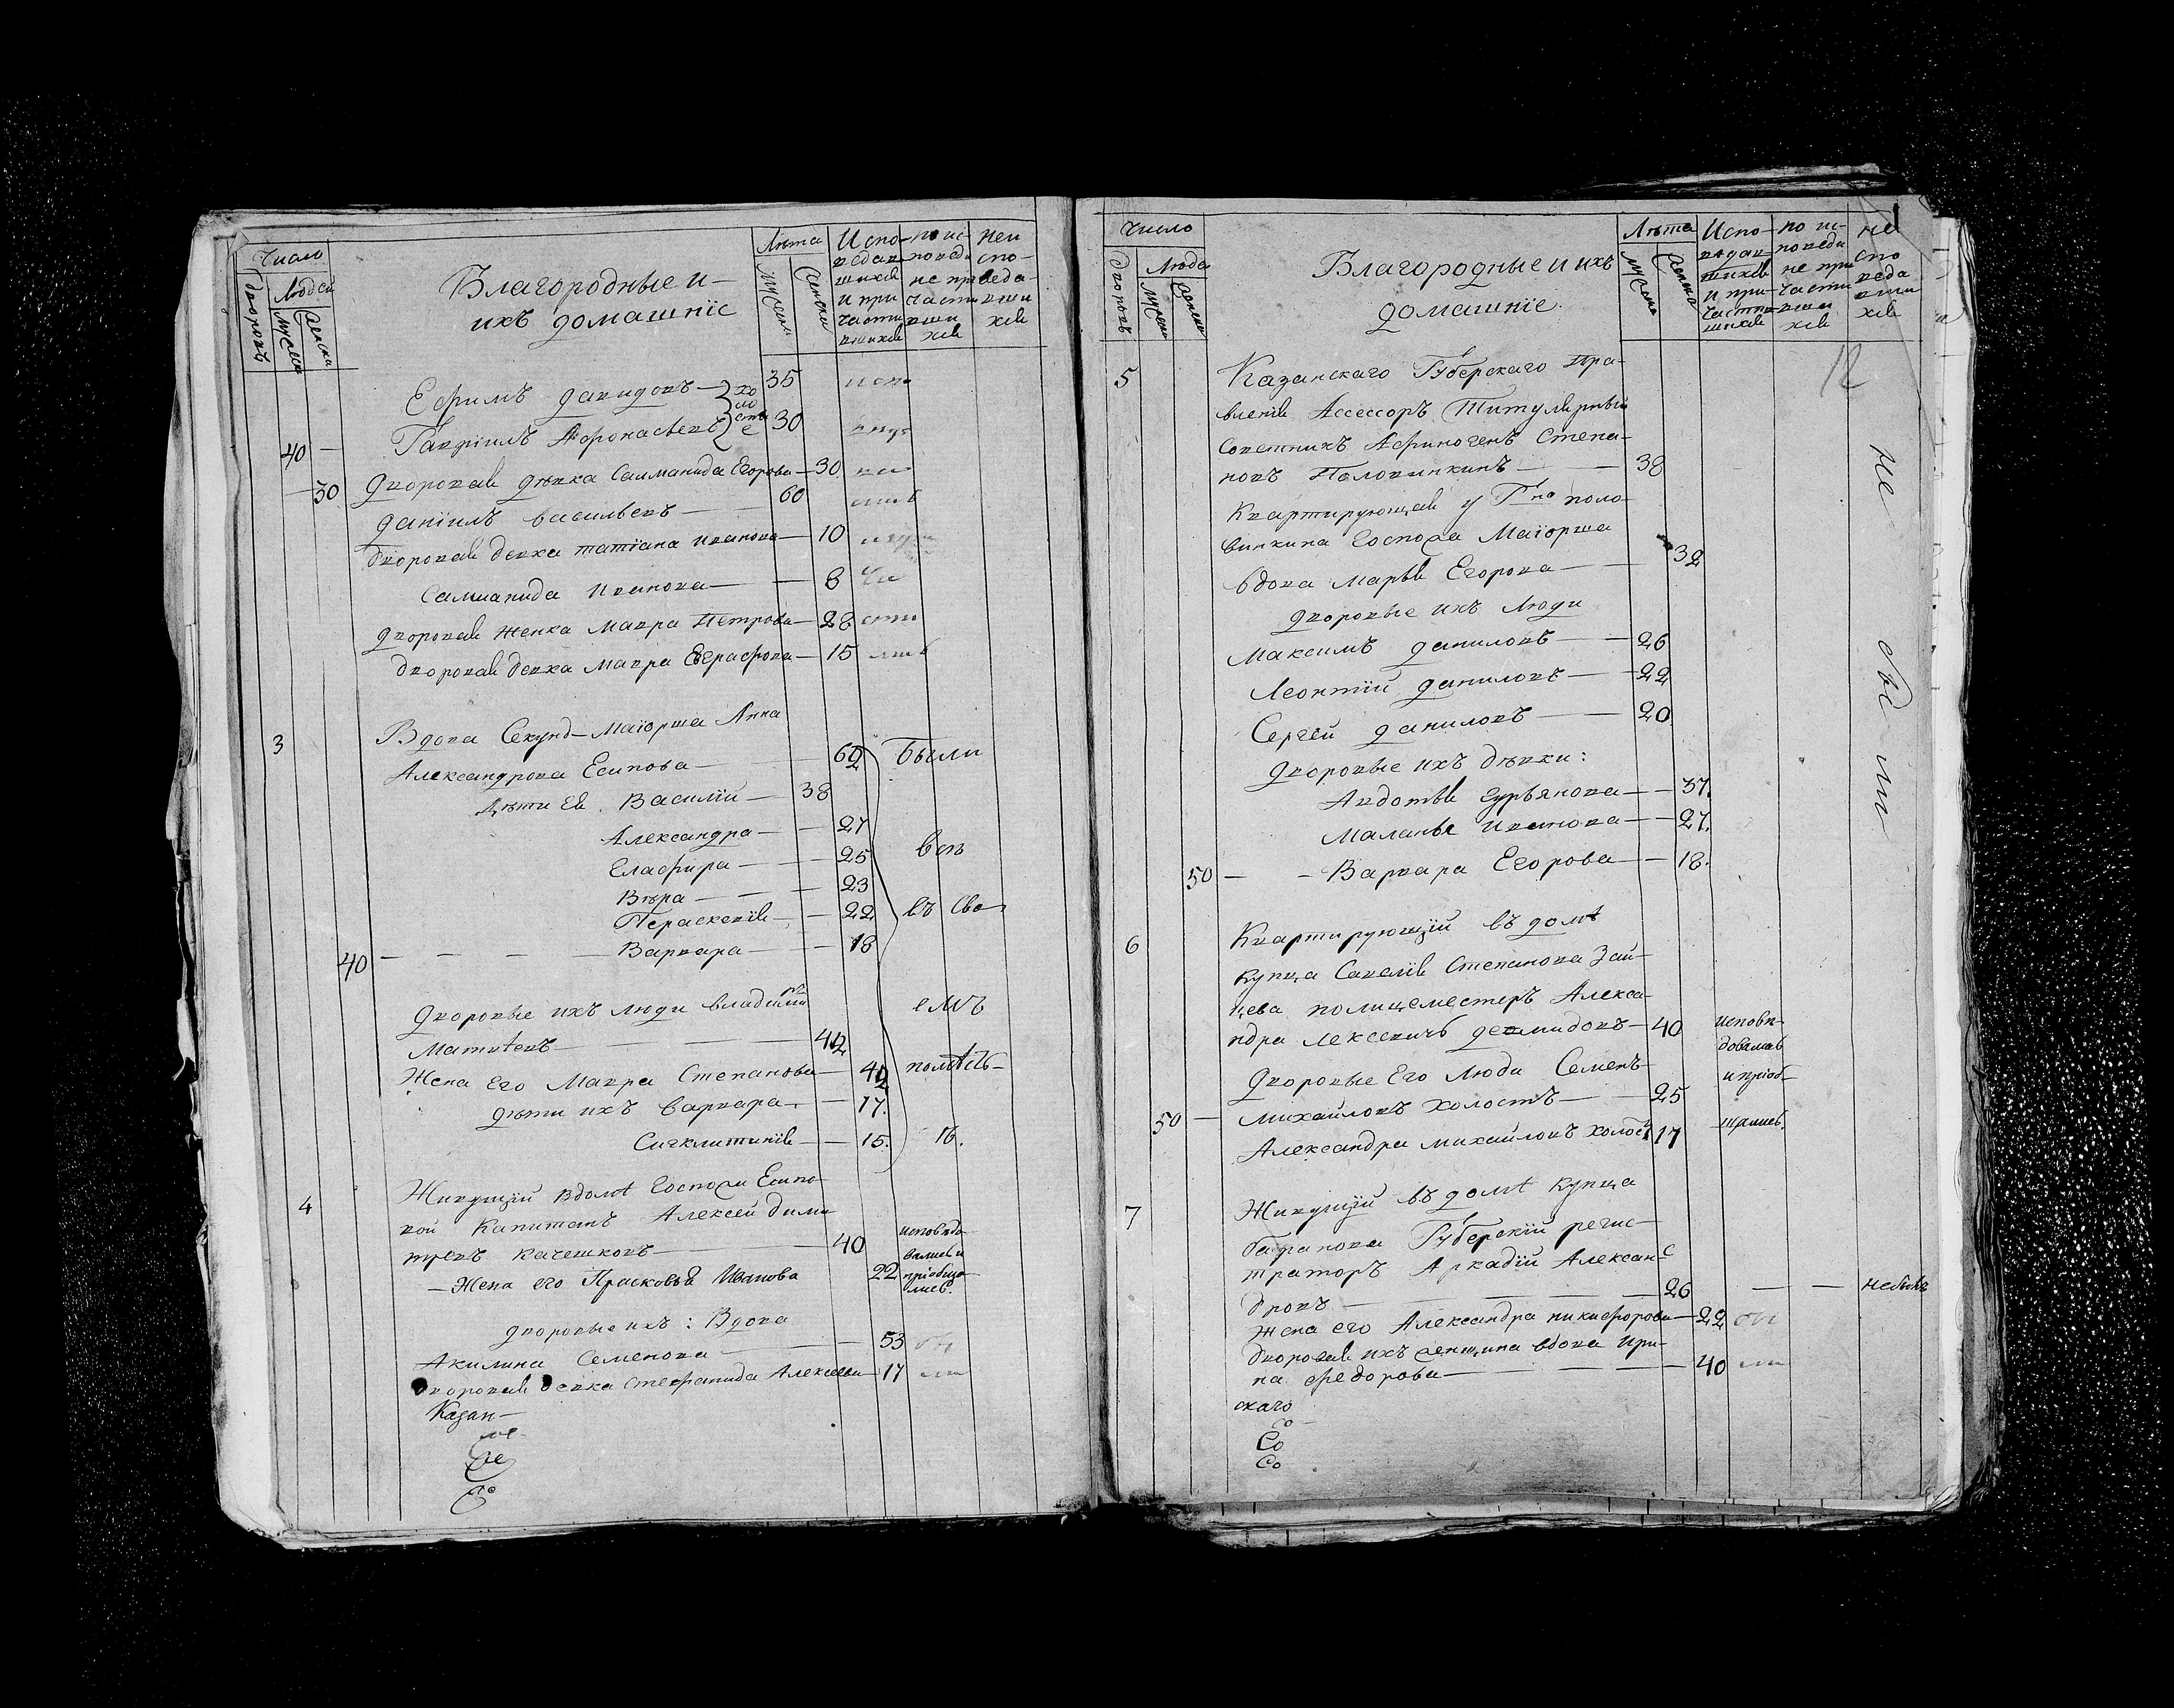 Число
Дворовъ
Людей
Мужска
Женска
Благородные и
ихъ домашніе
Лѣта
Мужски
Женски
Испо-
ведав-
шихся
и при
части
вшихся
по ис-
поведи
не при
части
вши
хся
неи
спо-
веда-
вши
хся
Ефимъ Давидовъ — 35
Гавріилъ Афонасьевъ — 30
холостые
40 —
— 30 Дворовая дѣвка Салманида Егорова — 30
Даніилъ Васильевъ — 60
Дворовая девка Татіана Иванова — 10
Саманида Иванова — 8
Дворовая женка Мавра Петрова — 28
Дворовая девка Мавра Евграфова — 15
3 Вдова Секунд-Маіорша Анна
Александрова Есипова — 62 Были
Дѣти ея Василій — 38
Александра — 27
Глафира — 25 всѣ
Вѣра — 23
Параскевія — 22 въ Сво
40 — Варвара — 18
Дворовые ихъ люди Владимиръ емъ
Матвѣевъ — 42
Жена Его Мавра Степанова — 42 помѣсть-
Дѣти ихъ Варвара — 17.
Сигклитикія — 15. ѣ.
4 Живущій Вдомѣ Госпожи Есипо-
вой Капитанъ Алексей Дими
тревъ Качешковъ — 40
— Жена его Прасковья Иванова 22
исповѣдо
вались и
пріобща
лись.
Дворовые ихъ: Вдова
Акилина Семенова — 53
Дворовая девка Стефанида Алексеева — 17
Казан-
Число
Дворовъ
Люде
Мужски
Женски
Благородные и ихъ
домашніе
Лѣта
Мужска
Женска
Испо-
ведав-
шихся
и при-
частив
шихся
по ис-
поведи
не при
части
вши
хся
не
спо
веда
вши
хся
12
5 Казанскаго Губерскаго Пра-
вленія Ассессоръ Титулярный
Советникъ Афиногенъ Степа-
новъ Половинкинъ — 38
Квартирующая у Гна Поло-
винкина Госпожа Маіорша
Вдова Марья Егорова — 32
Дворовые ихъ люди
Максимъ Даниловъ — 26
Леонтій Даниловъ — 22
Сергей Даниловъ — 20
Дворовые ихъ дѣвки:
Авдотья Гурьянова — 37.
Маланья Иванова — 27.
50 — Варвара Егорова — 18.
не были
6 Квартирующій въ домѣ
Купца Савелія Степанова Зай-
цева полицеместеръ Алекса-
ндра Лексеичь Демидовъ — 40
Дворовые Его люди Семенъ
50 — Михайловъ холостъ — 25
Александра Михайловъ холостъ 17
исповѣ-
довался
и пріоб-
щились.
7 Живущій въ домѣ Купца
Баранова Губерскій регис-
траторъ Аркадій Алексан-
дровъ — 26 — — небылъ
Жена его Александра Никифорова — 22
Дворовая ихъ женщина вдова Ири-
на Федорова — 40
скаго
Со
Со